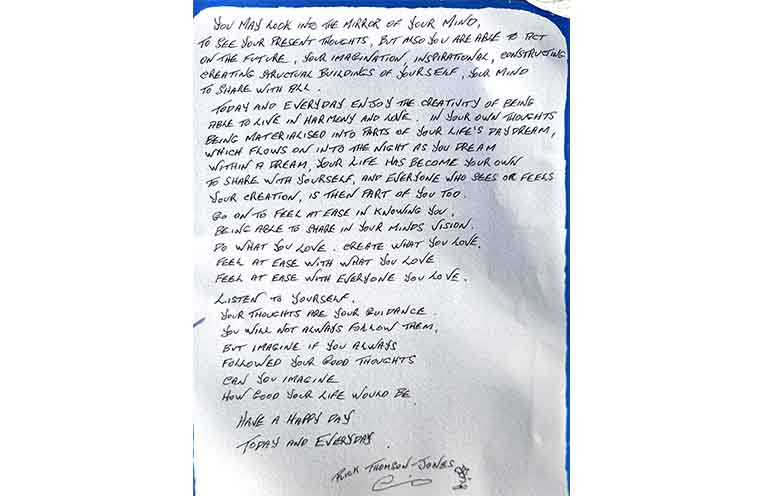 YOU MAY LOOK INTO THE MIRROR OF YOUR MIND,
TO SEE YOUR PRESENT THOUGHTS, BUT ALSO YOU ARE ABLE TO ACT
ON THE FUTURE, YOUR IMAGINATION, INSPIRATIONAL, CONSTRUCTING
CREATING STRUCTUAL BUILDINGS OF YOURSELF, YOUR MIND
TO SHARE WITH ALL.
TODAY AND EVERYDAY ENJOY THE CREATIVITY OF BEING
ABLE TO LIVE IN HARMONY AND LOVE. IN YOUR OWN THOUGHTS
BEING MATERIALISED INTO PARTS OF YOUR LIFE'S DAYDREAM,
WHICH FLOWS ON INTO THE NIGHT AS YOU DREAM
WITHIN A DREAM, YOUR LIFE HAS BECOME YOUR OWN
TO SHARE WITH YOURSELF, AND EVERYONE WHO SEES OR FEELS
YOUR CREATION, IS THEN PART OF YOU TOO.
GO ON TO FEEL AT EASE IN KNOWING YOU,
BEING ABLE TO SHARE IN YOUR MINDS VISION.
DO WHAT YOU LOVE. CREATE WHAT YOU LOVE.
FEEL AT EASE WITH WHAT YOU LOVE
FEEL AT EASE WITH EVERYONE YOU LOVE.
LISTEN TO YOURSELF.
YOUR THOUGHTS ARE YOUR GUIDANCE.
YOU WILL NOT ALWAYS FOLLOW THEM,
BUT IMAGINE IF YOU ALWAYS
FOLLOWED YOUR GOOD THOUGHTS
CAN YOU IMAGINE
HOW GOOD YOUR LIFE WOULD BE.
HAVE A HAPPY DAY
TODAY AND EVERYDAY.
RICK THOMSON-JONES